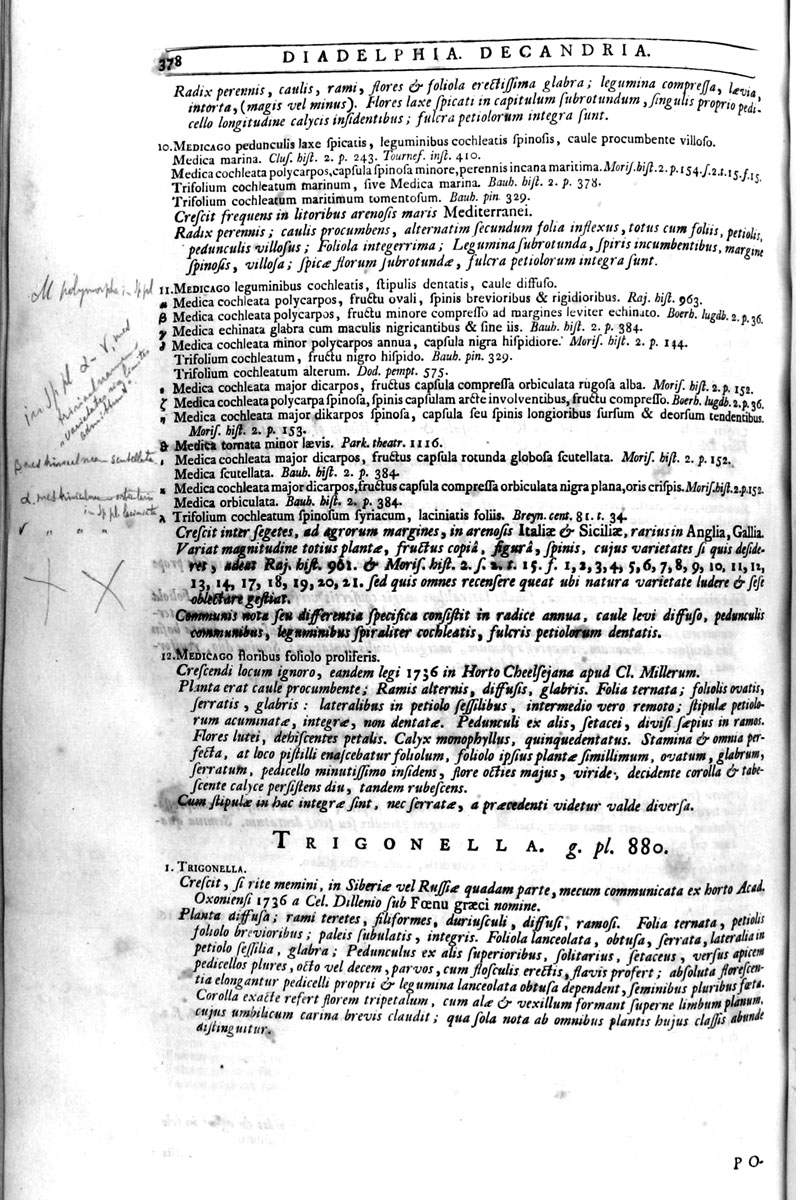 378 DIADELPHIA. DECANDRIA.
Radix perennis, caulis, rami, flores & foliola erectiſſima glabra; legumina compreſſa, lævia,
intorta, (magis vel minus). Flores laxe ſpicati in capitulum ſubrotundum, ſingulis proprio pedi-
cello longitudine calycis inſidentibus; fulcra petiolorum integra ſunt.
10. MEDICAGO pedunculis laxe ſpicatis, leguminibus cochleatis ſpinoſis, caule procumbente villoſo.
Medica marina. Cluſ. hiſt. 2. p. 243. Tournef. inſt. 410.
Medica cochleata polycarpos, capſula ſpinoſa minore, perennis incana maritima. Moriſ. hiſt. 2. p. 154. ſ. 2. t. 15. f. 15.
Trifolium cochleatum marinum, ſive Medica marina. Bauh. hiſt. 2. p. 378.
Trifolium cochleatum maritimum tomentoſum. Bauh. pin. 329.
Creſcit frequens in litoribus arenoſis maris Mediterranei.
Radix perennis; caulis procumbens, alternatim ſecundum folia inflexus, totus cum foliis, petiolis,
pedunculis villoſus; Foliola integerrima; Legumina ſubrotunda, ſpiris incumbentibus, margine
ſpinoſis, villoſa; ſpicæ florum ſubrotundæ, fulcra petiolorum integra ſunt.
M polymorpha in Sp pl
11. MEDICAGO leguminibus cochleatis, ſtipulis dentatis, caule diffuſo.
α Medica cochleata polycarpos, fructu ovali, ſpinis brevioribus & rigidioribus. Raj. hiſt. 963.
β Medica cochleata polycarpos, fructu minore compreſſo ad margines leviter echinato. Boerh. lugdb. 2. p. 36.
γ Medica echinata glabra cum maculis nigricantibus & ſine iis. Bauh. hiſt. 2. p. 384.
δ Medica cochleata minor polycarpos annua, capſula nigra hiſpidiore. Moriſ. hiſt. 2. p. 144.
Trifolium cochleatum, fructu nigro hiſpido. Bauh. pin. 329.
Trifolium cochleatum alterum. Dod. pempt. 575.
ε Medica cochleata major dicarpos, fructus capſula compreſſa orbiculata rugoſa alba. Moriſ. hiſt. 2. p. 152.
ζ Medica cochleata polycarpa ſpinoſa, ſpinis capſulam arcte involventibus, fructu compreſſo. Boerh. lugdb. 2. p. 36.
η Medica cochleata major dikarpos ſpinoſa, capſula ſeu ſpinis longioribus ſurſum & deorſum tendentibus.
Moriſ. hiſt. 2. p. 153.
θ Medica tornata minor lævis. Park. theatr. 1116.
ι Medica cochleata major dicarpos, fructus capſula rotunda globoſa ſcutellata. Moriſ. hiſt. 2. p. 152.
Medica ſcutellata. Bauh. hiſt. 2. p. 384.
κ Medica cochleata major dicarpos, fructus capſula compreſſa orbiculata nigra plana, oris criſpis. Moriſ. hiſt. 2. p. 152.
Medica orbiculata. Bauh. hiſt. 2. p. 384.
λ Trifolium cochleatum ſpinoſum ſyriacum, laciniatis foliis. Breyn. cent. 81. t. 34.
Creſcit inter ſegetes, ad agrorum margines, in arenoſis Italiæ & Siciliæ, rarius in Anglia, Gallia.
Variat magnitudine totius plantæ, fructus copiâ, figurâ, ſpinis, cujus varietates ſi quis deſide-
ret, adeat Raj. hiſt. 961. & Moriſ. hiſt. 2. ſ. 2. t. 15. f. 1, 2, 3, 4, 5, 6, 7, 8, 9, 10, 11, 12,
13, 14, 17, 18, 19, 20, 21. ſed quis omnes recenſere queat ubi natura varietate ludere & ſeſe
oblectare geſtiat.
Communis nota ſeu differentia ſpecifica conſiſtit in radice annua, caule levi diffuſo, pedunculis
communibus, leguminibus ſpiraliter cochleatis, fulcris petiolorum dentatis.
12. MEDICAGO floribus foliolo proliferis.
Creſcendi locum ignoro, eandem legi 1736 in Horto Cheelſejana apud Cl. Millerum.
Planta erat caule procumbente; Ramis alternis, diffuſis, glabris. Folia ternata; foliolis ovatis,
ſerratis, glabris: lateralibus in petiolo ſeſſilibus, intermedio vero remoto; ſtipulæ petiolo-
rum acuminatæ, integræ, non dentatæ. Pedunculi ex alis, ſetacei, diviſi ſæpius in ramos.
Flores lutei, dehiſcentes petalis. Calyx monophyllus, quinquedentatus. Stamina & omnia per-
fecta, at loco piſtilli enaſcebatur foliolum, foliolo ipſius plantæ ſimillimum, ovatum, glabrum,
ſerratum, pedicello minutiſſimo inſidens, flore octies majus, viride, decidente corolla & tabe-
ſcente calyce perſiſtens diu, tandem rubeſcens.
Cum ſtipulæ in hac integræ ſint, nec ſerratæ, a præcedenti videtur valde diverſa.
TRIGONELLA. g. pl. 880.
1. TRIGONELLA.
Creſcit, ſi rite memini, in Siberiæ vel Ruſſiæ quadam parte, mecum communicata ex horto Acad.
Oxonienſi 1736 a Cel. Dillenio ſub Fœnu græci nomine.
Planta diffuſa; rami teretes, filiformes, duriuſculi, diffuſi, ramoſi. Folia ternata, petiolis
foliolo brevioribus; paleis ſubulatis, integris. Foliola lanceolata, obtuſa, ſerrata, lateralia in
petiolo ſeſſilia, glabra; Pedunculus ex alis ſuperioribus, ſolitarius, ſetaceus, verſus apicem
pedicellos plures, octo vel decem, parvos, cum floſculis erectis, flavis profert; abſoluta floreſcen-
tia elongantur pedicelli proprii & legumina lanceolata obtuſa dependent, ſeminibus pluribus fœta.
Corolla exacte refert florem tripetalum, cum alæ & vexillum formant ſuperne limbum planum,
cujus umbilicum carina brevis claudit; qua ſola nota ab omnibus plantis hujus claſſis abunde
diſtinguitur.
PO-